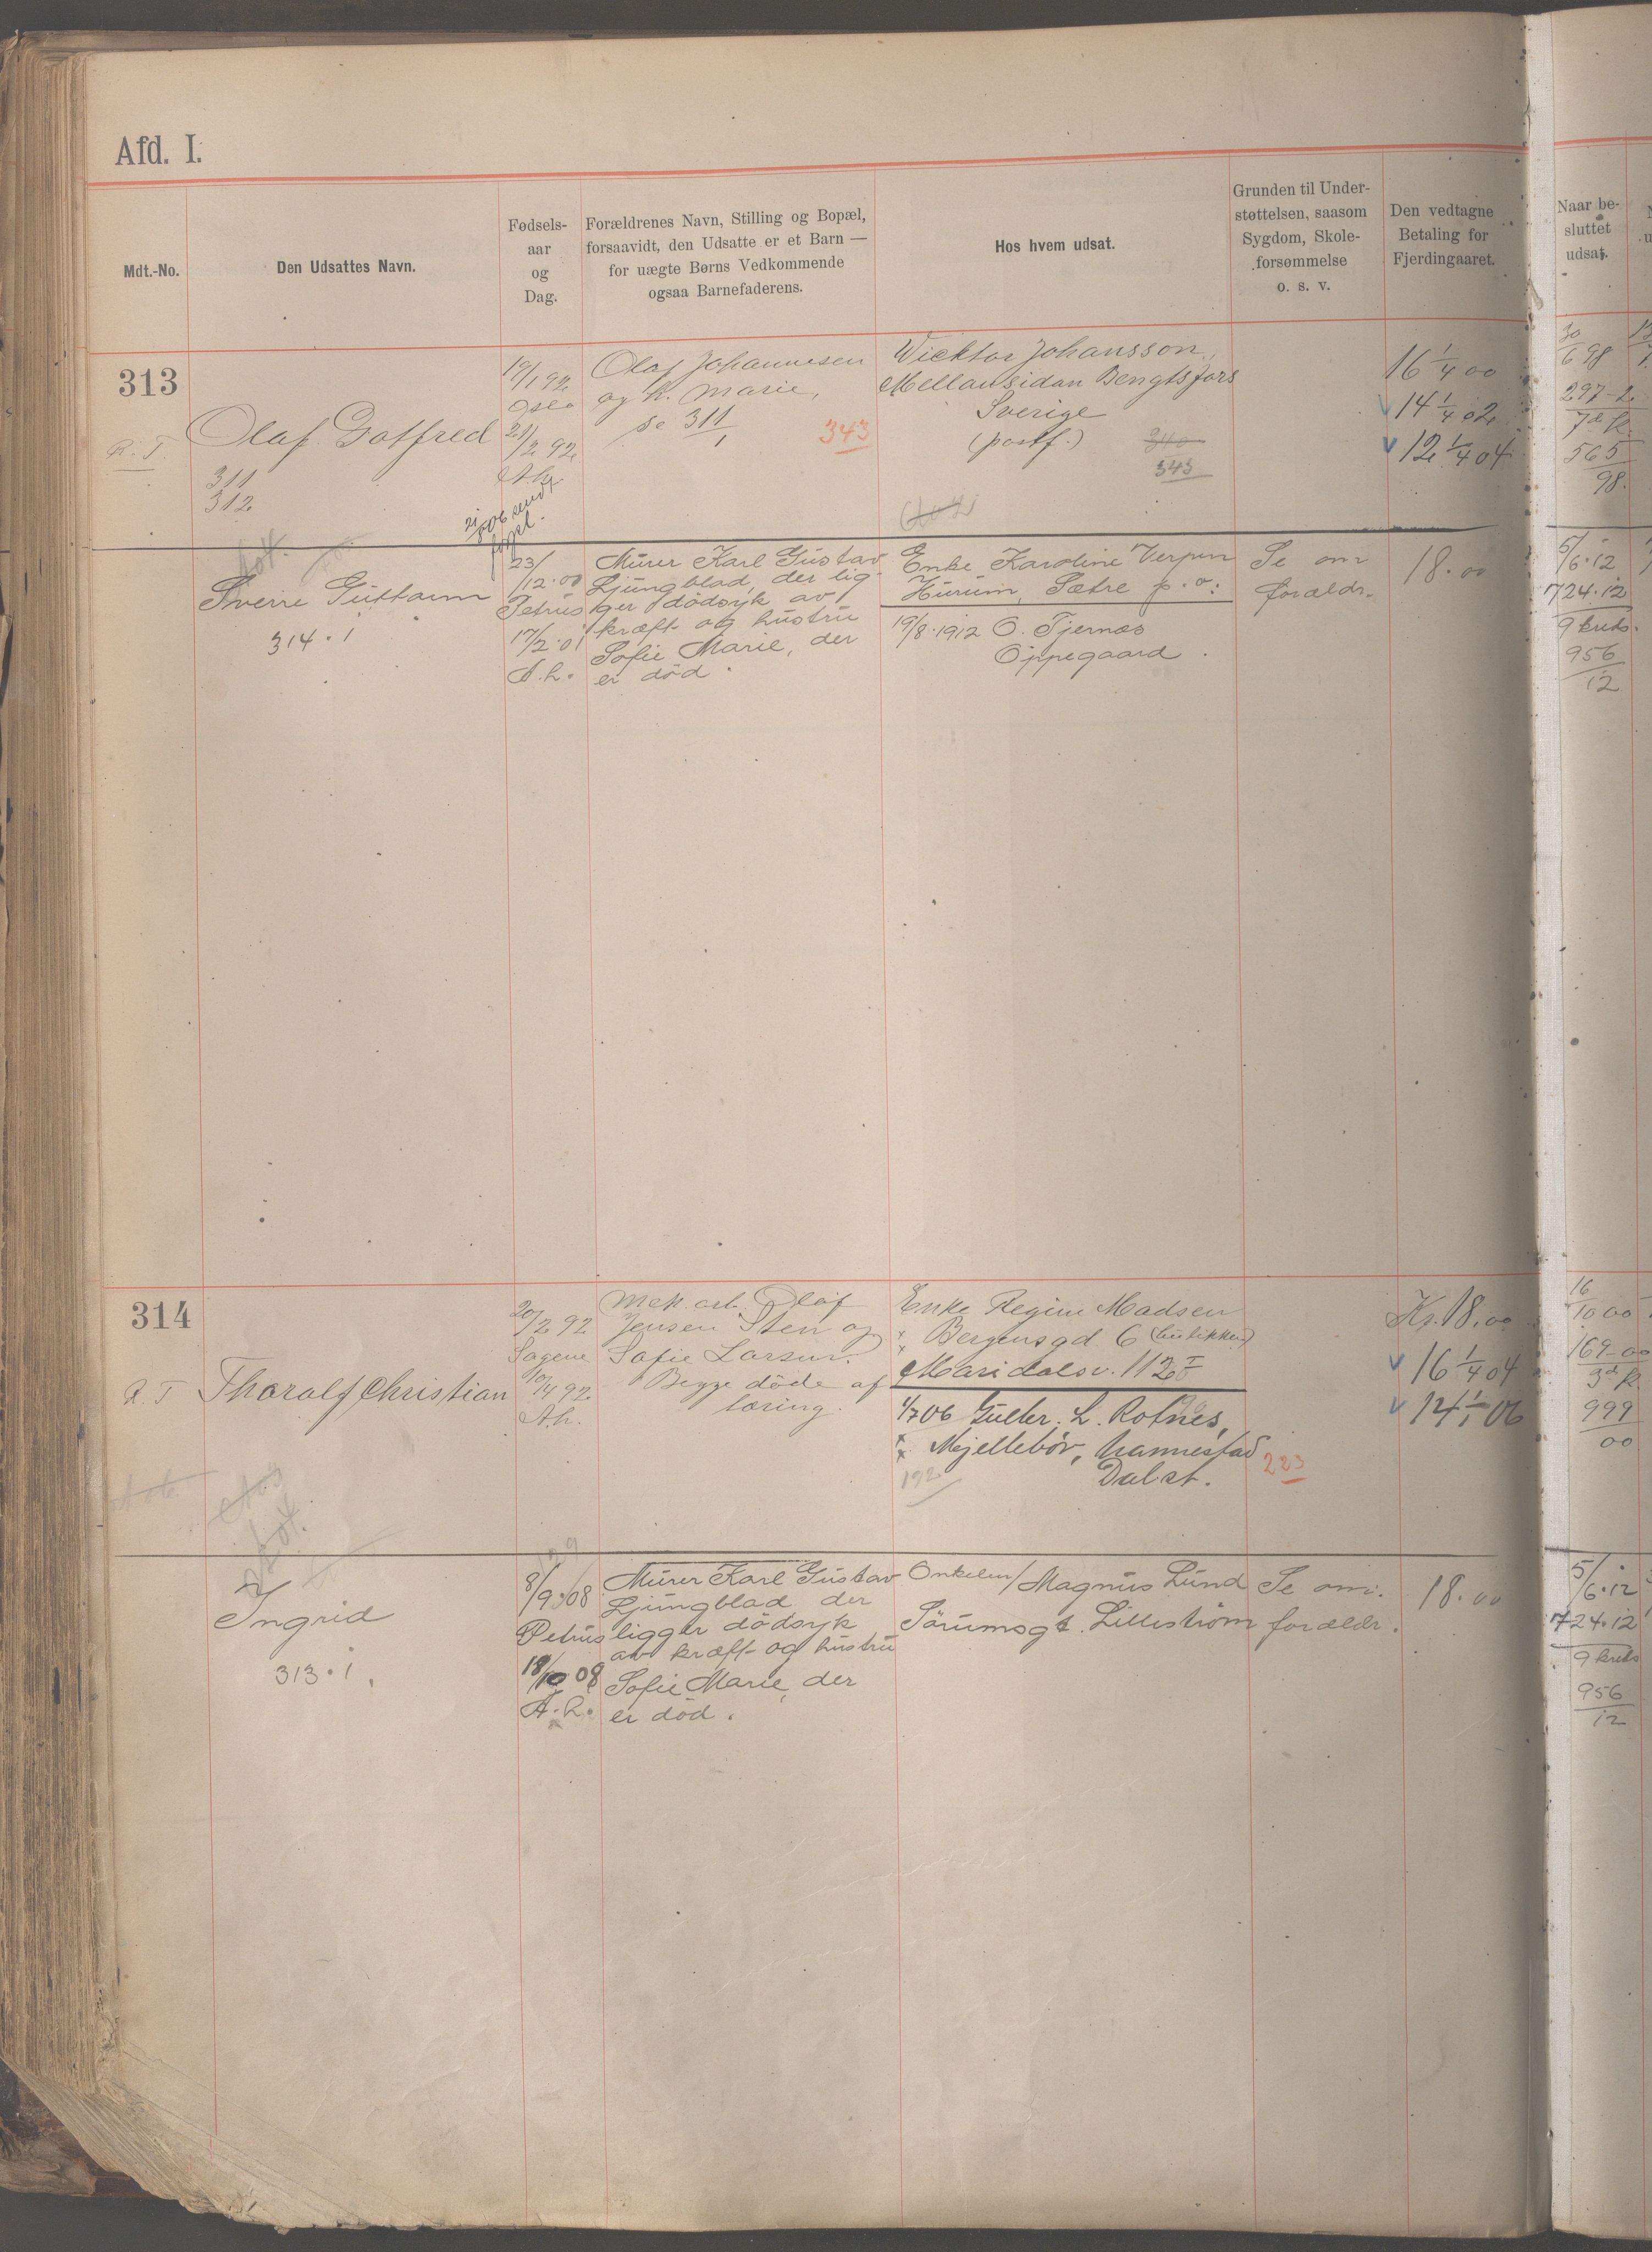 Afd. I.
Mdt.-No.
Den Udsattes Navn.
Fødsels-
aar
og
Dag.
Forældrenes Navn, Stilling og Bopæl,
forsaavidt, den Udsatte er et Barn —
for uægte Børns Vedkommende
ogsaa Barnefaderens.
Hos hvem udsat.
Grunden til Under-
støttelsen, saasom
Sygdom, Skole-
forsømmelse
o. s. v.
Den vedtagne
Betaling for
Fjerdingaaret.
Naar be-
sluttet
udsat.
313
Olaf Gotfred
311
312
19/1 92
Oslo
21/2 92
A.k.
Olaf Johannesen
og h. Marie,
se 311/1
343
Wicktor Johansson,
Mellansidan Bengtsfors
Sverige
(postf.)
340
343
16 1/4 00
14 1/4 02
12 1/4 04
30/6 98
297-2
7de k.
565/98
Sverre Guttorm
314.1
23/12.00
Petrus
17/2.01
A.k.
Murer Karl Gustav
Ljungblad, der lig-
ger dödsyk av
kræft og hustru
Sofie Marie, der
er död.
Enke Karoline Verpen
Hurum, Sætre p.o.
19/8.1912 O. Tjernæs
Oppegaard.
Se om
forældr.
18.00
5/6.12
724.12
9 kreds.
956/12
314
R. T
Tharalf Christian
20/2 92
Sagene
10/4 92
A.k.
Mek. arb. Olaf
Jensen Sten og
Sofie Larsen.
Begge döde af
tæring.
Enke Regine Madsen
Bergensgd. 6
Maridalsv. 112 I
1/7 06 Gulbr. L. Rotnes,
Mjellebör, Nannestad
Dal st.
192
223
Kr. 18.00
16 1/4 04
14 1/1 06
16/10 00
169-00
3de k.
999/00
Ingrid
313.1.
8/9.08
Petrus
18/10 08
A.k.
Murer Karl Gustav
Ljungblad der
ligger dödsyk
av kræft og hustru
Sofie Marie, der
er död.
Onkelen/Magnus Lund
Sörumsgt. Lilleström
Se om
forældr.
18.00
5/6.12
724.12
9 kreds
956/12